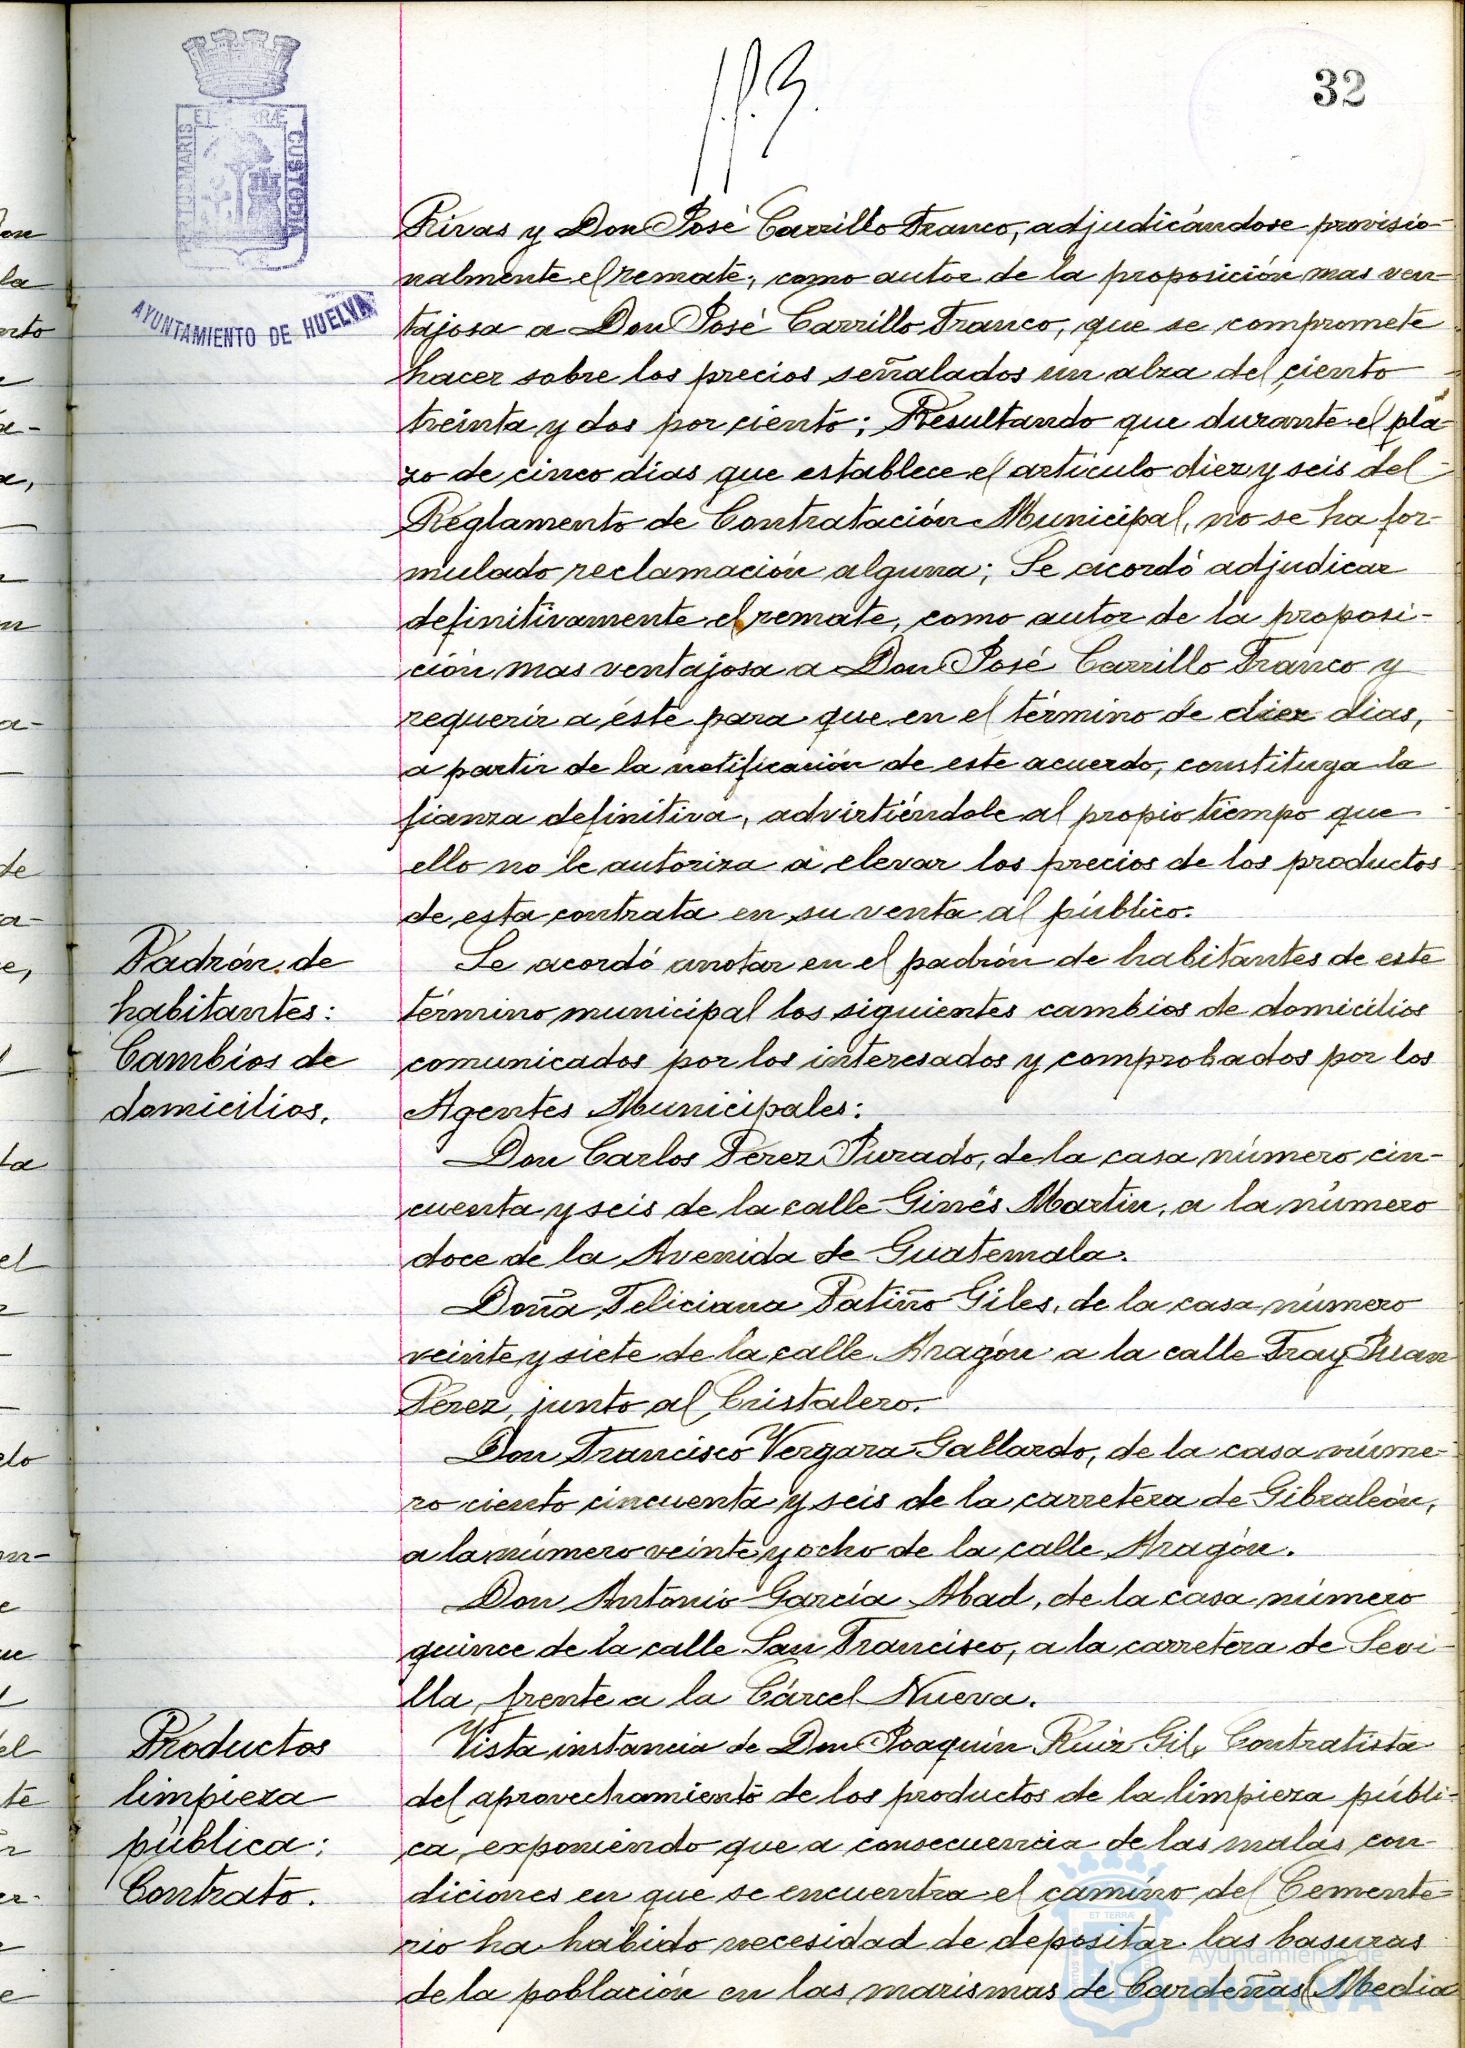 32
ET TERRÆ
CUSTODIA
MARIS
AYUNTAMIENTO DE HUELVA
Rivas y Don José Carrillo Franco, adjudicándose provisio-
nalmente el remate, como autor de la proposición mas ven-
tajosa a Don José Carrillo Franco, que se compromete
hacer sobre los precios señalados un alza del ciento
treinta y dos por ciento; Resultando que durante el pla-
zo de cinco dias que establece el articulo diez y seis del
Reglamento de Contratación Municipal, no se ha for-
mulado reclamación alguna; Se acordó adjudicar
definitivamente el remate, como autor de la proposi-
ción mas ventajosa a Don José Carrillo Franco y
requerir a éste para que en el término de diez dias,
a partir de la notificación de este acuerdo, constituya la
fianza definitiva, advirtiéndole al propio tiempo que
ello no le autoriza a elevar los precios de los productos
de esta contrata en su venta al público.
Padrón de
habitantes:
Cambios de
domicilios.
Se acordó anotar en el padrón de habitantes de este
término municipal los siguientes cambios de domicilios
comunicados por los interesados y comprobados por los
Agentes Municipales:
Don Carlos Perez Jurado, de la casa número cin-
cuenta y seis de la calle Ginés Martin, a la número
doce de la Avenida de Guatemala.
Doña Feliciana Patiño Giles, de la casa número
veinte y siete de la calle Aragón a la calle Fray Juan
Pérez, junto al Cristalero.
Don Francisco Vergara Gallardo, de la casa núme-
ro ciento cincuenta y seis de la carretera de Gibraleón,
a la número veinte y ocho de la calle Aragón.
Don Antonio García Abad, de la casa número
quince de la calle San Francisco, a la carretera de Sevi-
lla, frente a la Cárcel Nueva.
Productos
limpieza
pública:
Contrato.
Vista instancia de Don Joaquín Ruiz Gil, Contratista
del aprovechamiento de los productos de la limpieza públi-
ca, exponiendo que a consecuencia de las malas con-
diciones en que se encuentra el camino del Cemente-
rio ha habido necesidad de depositar las basuras
de la población en las marismas de Cardeñas (Media
ET TERRÆ
Ayuntamiento de
HUELVA